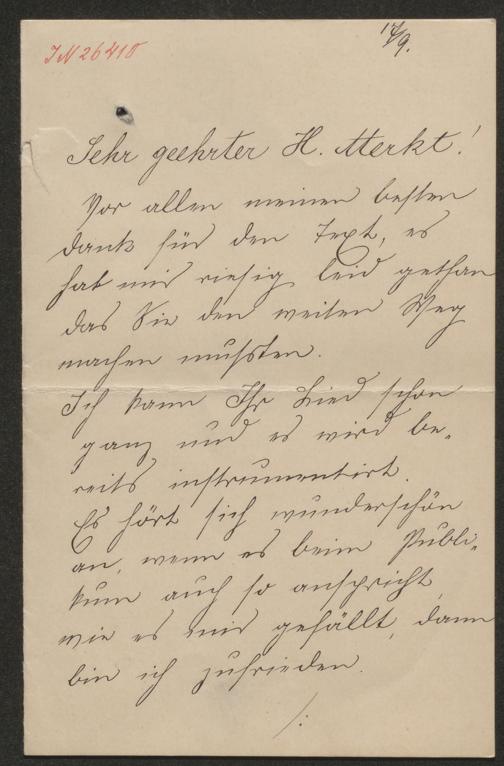 IN 26418
17/9.
Sehr geehrter H. Merkt!
Vor allen meinen besten
Dank für den Text, es
hat mir riesig leid gethan
das Sie den weiten Weg
machen mußten.
Ich kann Ihr Lied schon
ganz und es wird be-
reits instrumentirt.
Es hört sich wunderschön
an, wenn es beim Publi-
kum auch so anspricht,
wie es mir gefällt, dann
bin ich zufrieden.
/: